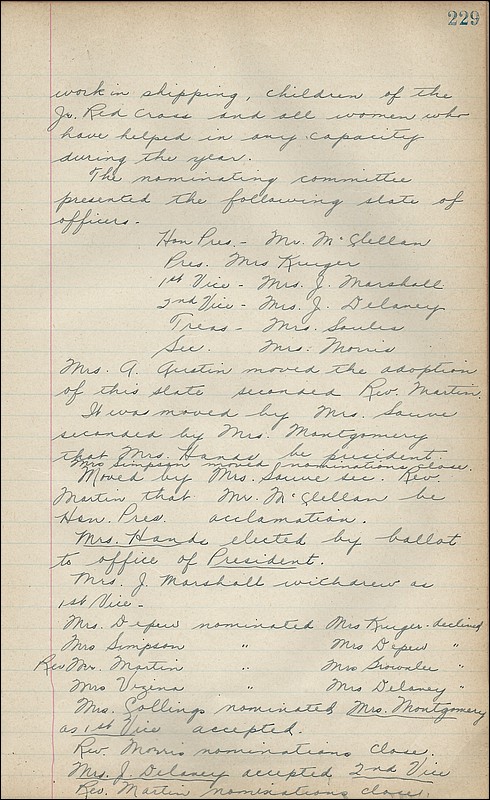 229
work in shipping, children of the
Jr. Red Cross and all women who
have helped in any capacity
during the year.
The nominating committee
presented the following slate of
officers.
Hon Pres. - Mr. McClellan
Pres. Mrs Krueger
1st Vice - Mrs. J. Marshall
2nd Vice - Mrs. J. Delaney
Treas - Mrs. Soules
Sec. Mrs. Morris
Mrs. A. Austin moved the adoption
of this slate seconded Rev. Martin.
It was moved by Mrs. Sauve
seconded by Mrs. Montgomery
that Mrs. Hands be president.
Mrs Simpson moved nominations close.
Moved by Mrs. Sauve sec. Rev.
Martin that Mr. McClellan be
Hon. Pres. acclamation.
Mrs. Hands elected by ballot
to office of President.
Mrs. J. Marshall withdrew as
1st Vice -
Mrs. Depew nominated Mrs Kruger - declined
Mrs Simpson " Mrs Depew "
Rev Mr. Martin " Mrs Brownlee "
Mrs Vezena " Mrs Delaney "
Mrs. Collings nominated Mrs. Montgomery
as 1st Vice accepted.
Rev. Morris nominations close.
Mrs. J. Delaney accepted 2nd Vice
Rev. Martin nominations close.